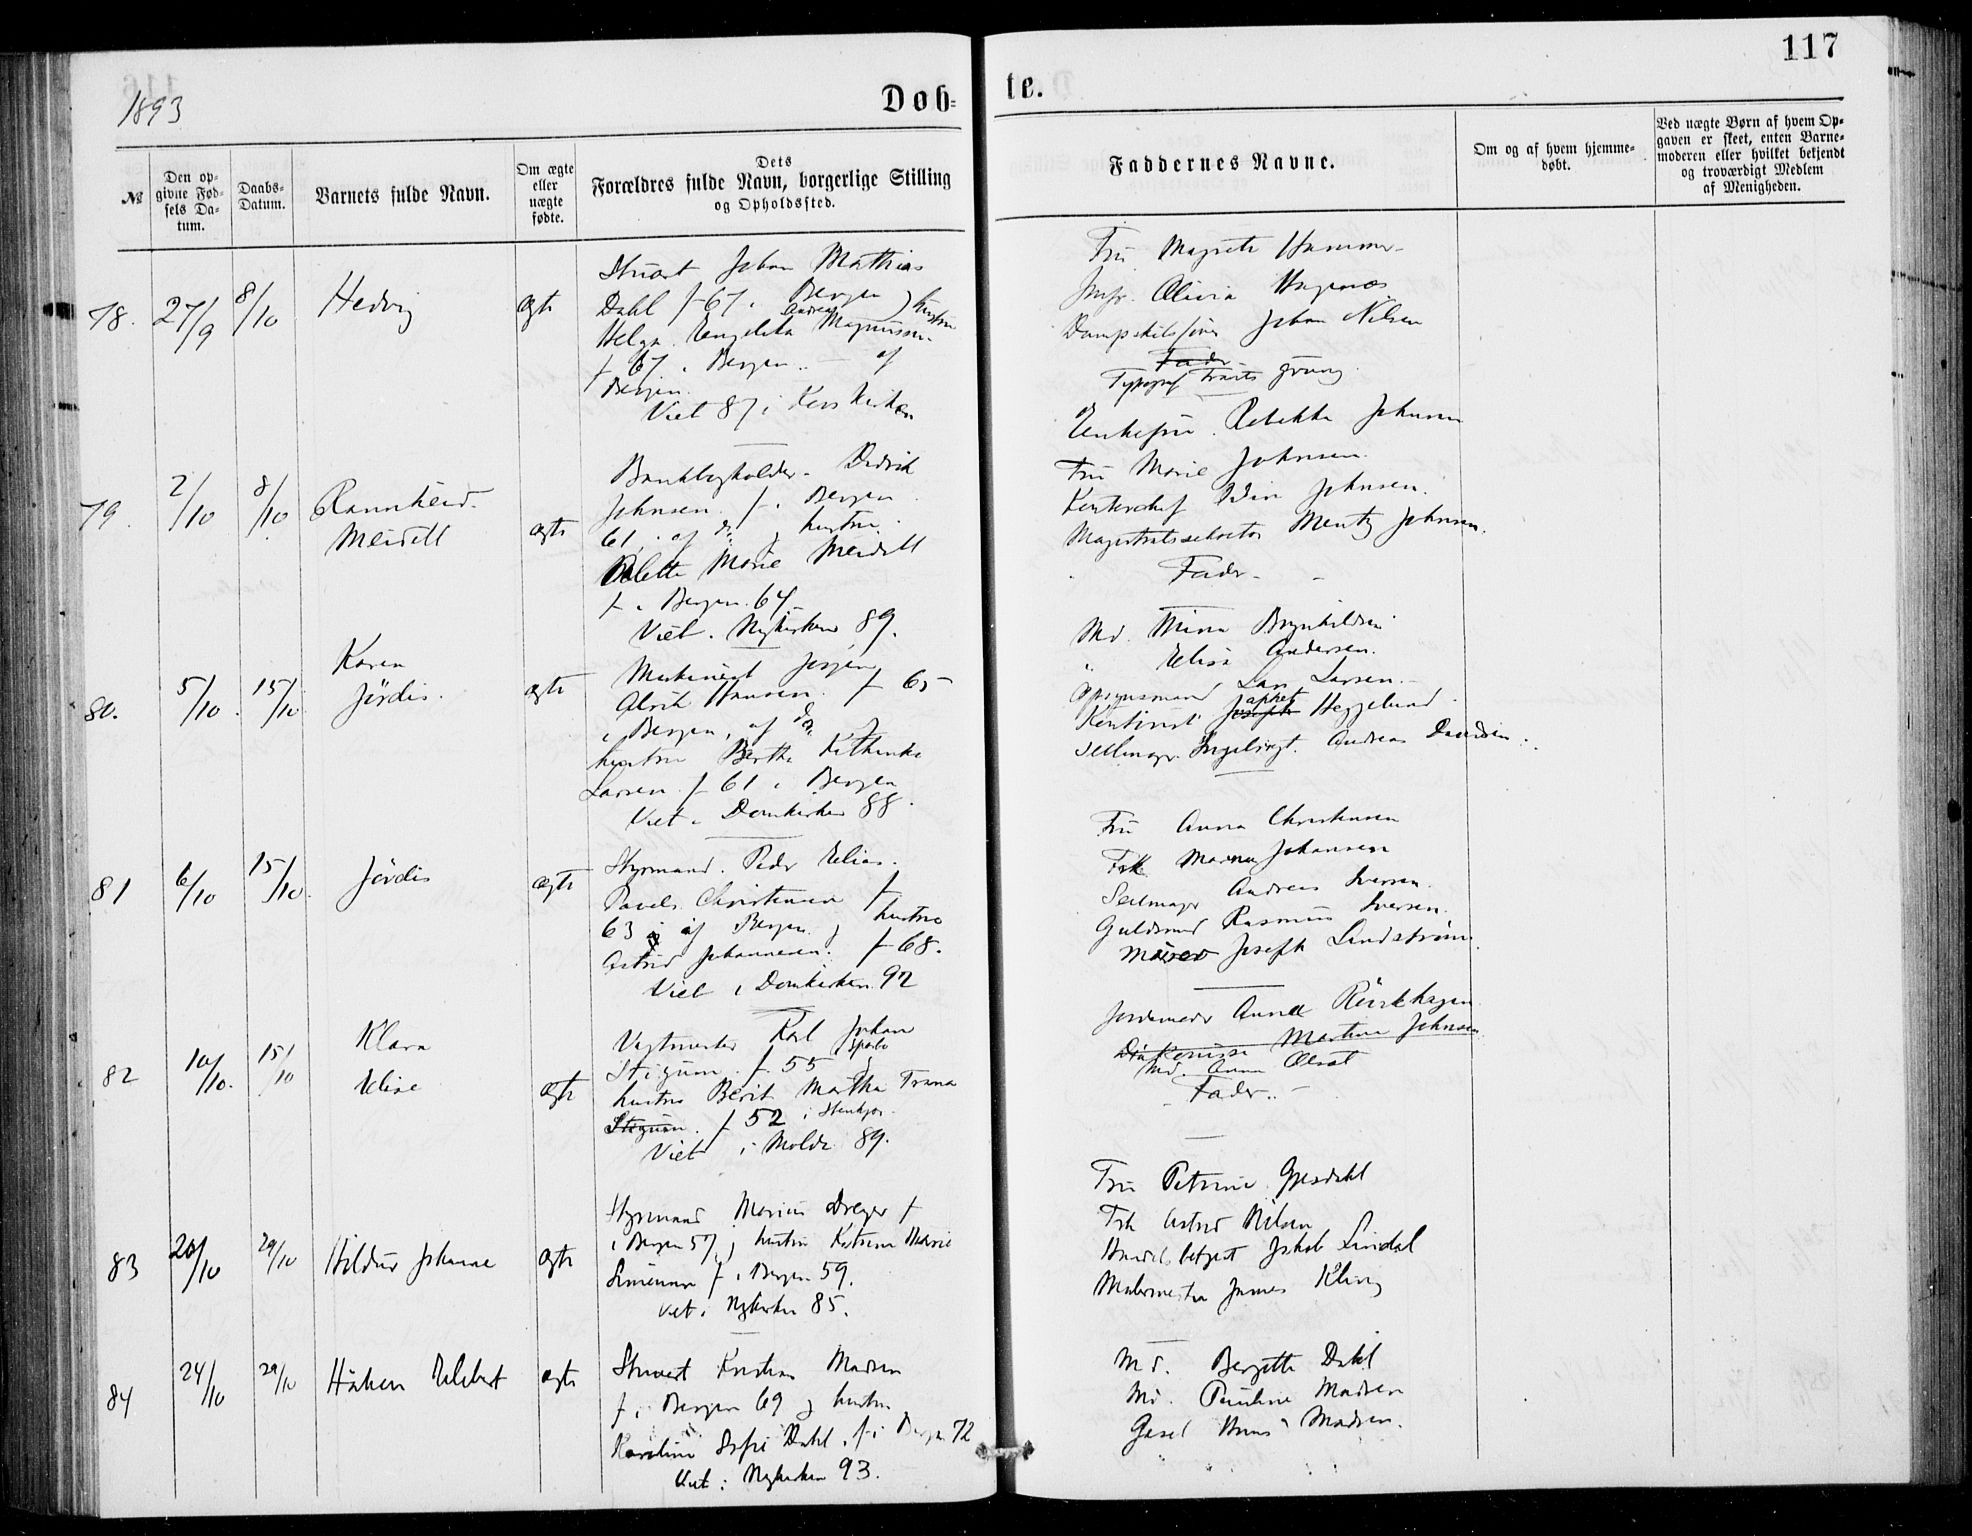 117
1893
Døb-
te.
№
Den op-
givne Fød-
sels Da-
tum.
Daabs-
Datum.
Barnets fulde Navn.
Om ægte
eller
uægte
fødte.
Dets
Forældres fulde Navn, borgerlige Stilling
og Opholdssted.
Faddernes Navne.
Om og af hvem hjemme-
døbt.
Ved uægte Børn af hvem Op-
gaven er skeet, enten Barne-
moderen eller hvilket bekjendt
og troværdigt Medlem
af Menigheden.
78. 27/9 8/10 Hedvig ægte
Stuert Johan Mathias
Dahl f 67 i Bergen
Andrea
Helga Engelika Magnussen
f 67 i Bergen af
Bergen.
Viet 87 i Korskirken
Fru Magrete Hammer
Jmfr. Olivia
Johan Nilsen
Fader
Typograf
79. 2/10 8/10 Rannheid
Meidell ægte
Bankbogholder Didrik
Johnsen f. i Bergen
61, af do, hustru
Bolette Marie Meidell
f i Bergen 64
Viet i Nykirken 89.
Enkefru Rebekka Johnsen
Fru Marie Johnsen
Kontorchef Johnsen.
Magistratssekretær Mentz Johnsen.
Fader
80. 5/10 15/10 Karen
Jördis. ægte
Maskinist Jørgen
Alrik Hansen f 65
i Bergen, af do
hustru Berthe Kathinka
Larsen f 61 i Bergen
Viet i Domkirken 88.
Md. Mina Brynhildsen
" Elisa Andersen.
Opsynsmand Lars Larsen.
Kontorist Heggelund
Seilmager Ingebrigt Andreas Davidsen.
81 6/10 15/10 Jördis ægte
Styrmand Peder Elias
Pavels Christensen f
63 i af Bergen, hustru
Astrid Johannesen f 68.
Viet i Domkirken 92
Fru Anna Christensen
Frk Marna Johansen
Seilmager Andreas Iversen.
Guldsmed Rasmus Iversen.
Murer Joseph Lindstrøm.
82 10/10. 15/10 Klara
Elise ægte
Vagtmester Karl Johan
Stigum f. 55 i Sparbo
hustru Berit Martha Trana
Stigum. f 52 i Stenkjær
Viet i Molde 89.
Jordemoder Anna Röiskhagen
Diakonisse Martine Johnsen
Md. Anna
Fader.
83 20/10 29/10 Hildur Johanne ægte
Styrmand Marius Dreyer f
i Bergen 57, hustru Katrine Marie
Simensen f i Bergen 59.
viet i Nykirken 85.
Fru Petrine Gjesdahl
Frk Astrid Nilsen
Handelsbetjent Jakob Lindal
Malermester James Kling
84 24/10 29/10 Håkon Elebert ægte
Stuert Kristian Madsen
f. i Bergen 69 og hustru
Karoline Sofie Dahl, f i Bergen 72
Viet i Nykirken 93.
Md. Bergitte Dahl
Md. Pauline Madsen
Gasel Hans Madsen.